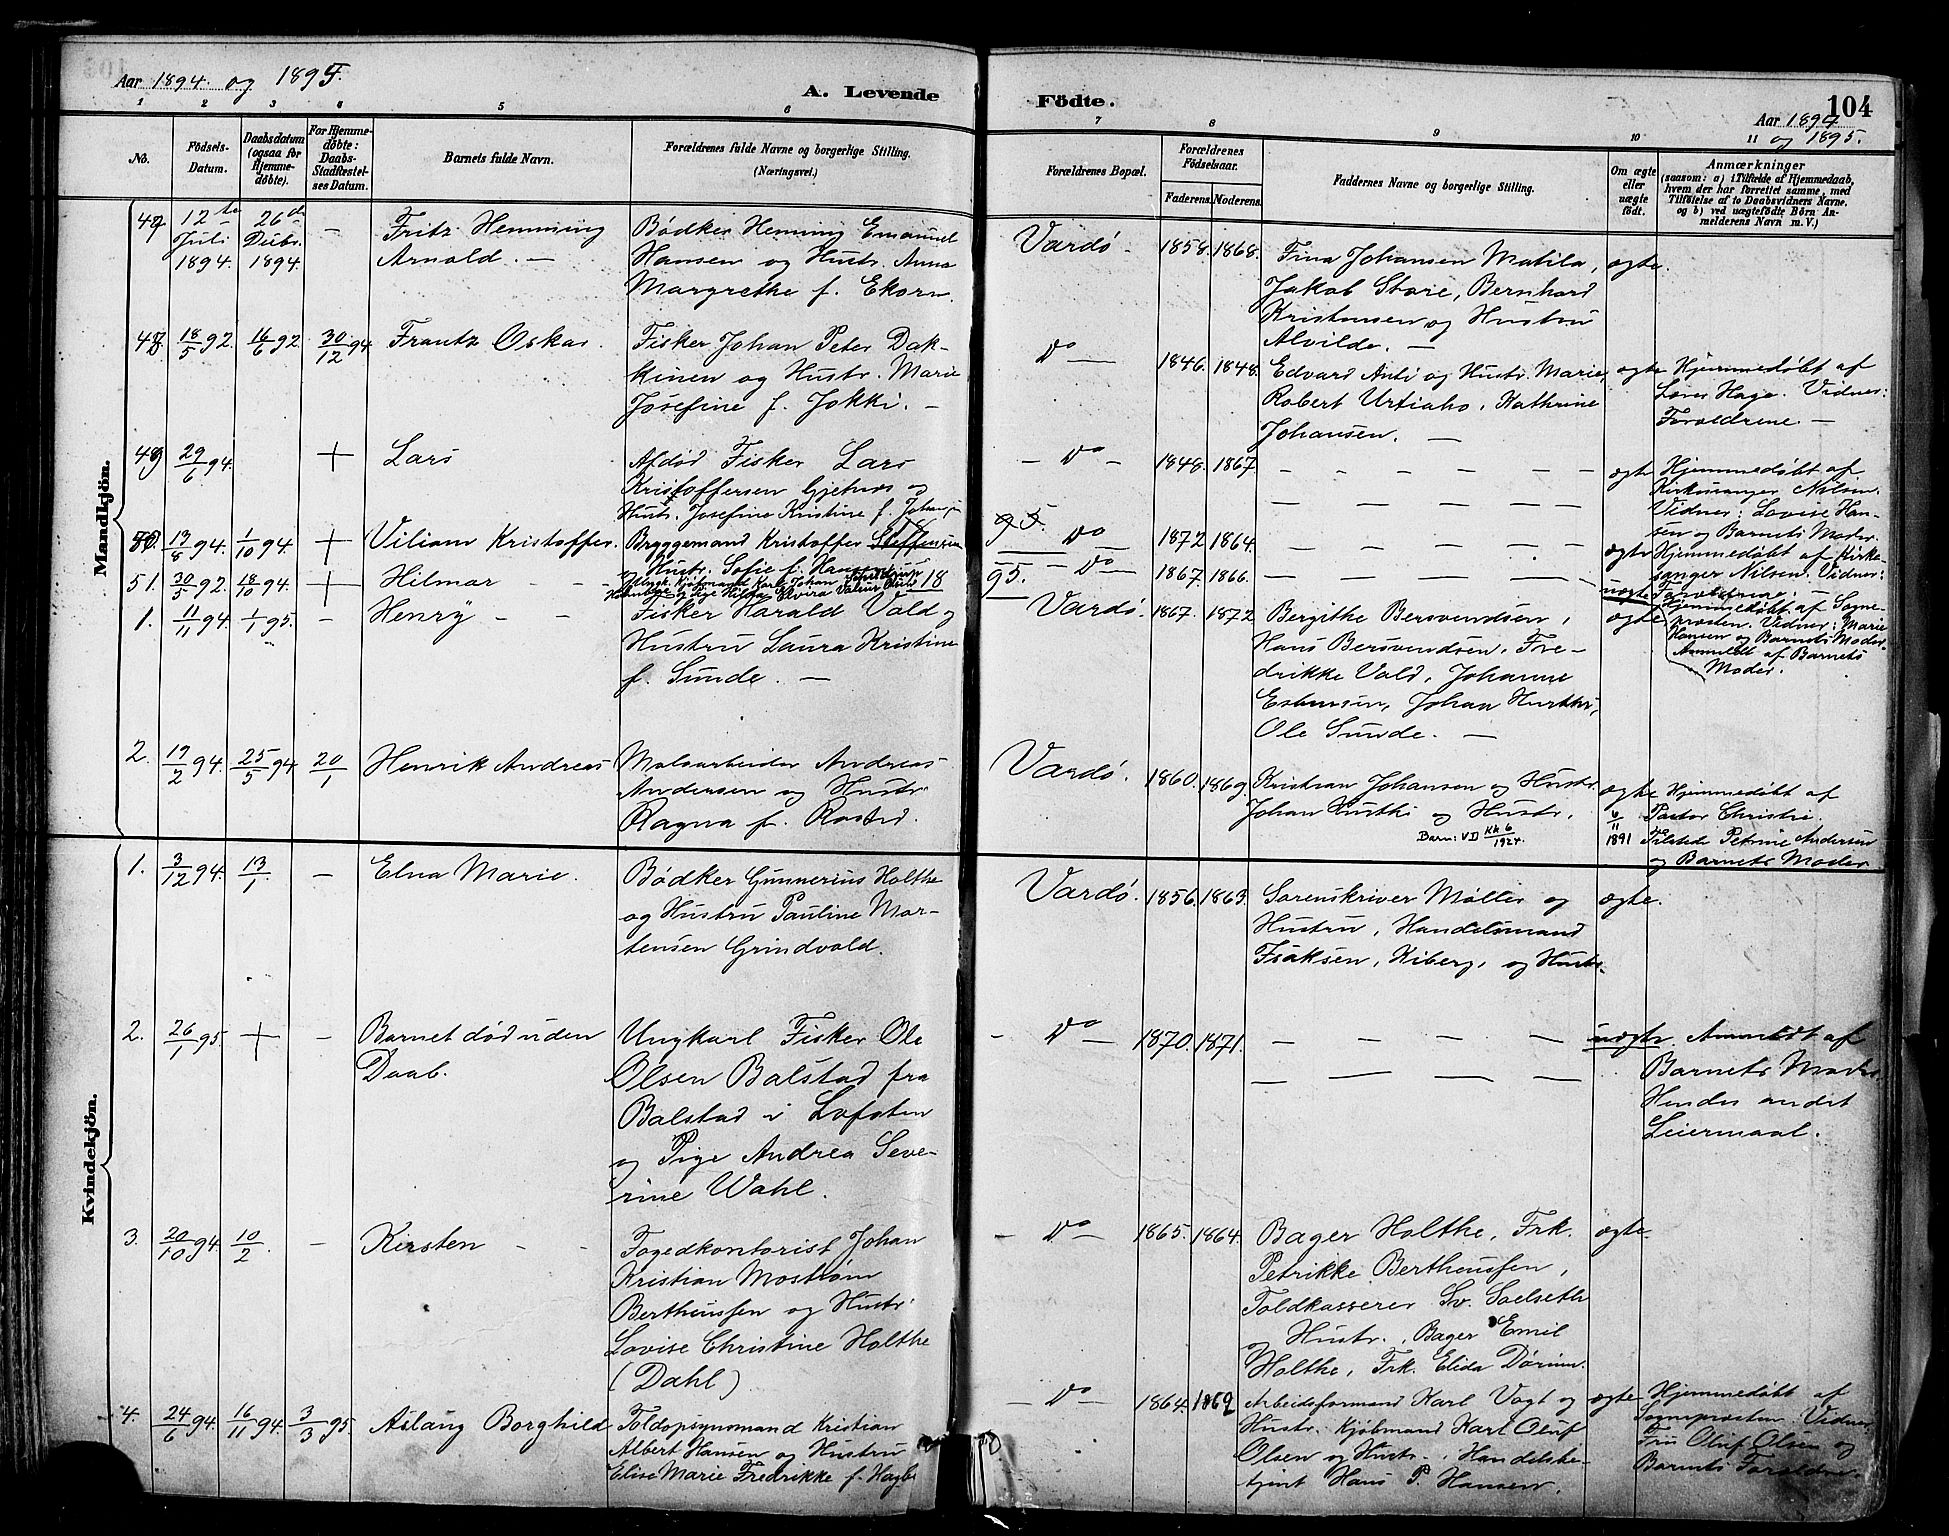 Aar 1894. og 1895.
A. Levende
Födte.
104
Aar 1894
og 1895.
1 2 3 4 5 6 7 8 9 10 11
No.
Födsels-
Datum.
Daabsdatum
(ogsaa for
Hjemme-
döbte).
For Hjemme-
döbte:
Daabs-
Stadfæstel-
ses Datum.
Barnets fulde Navn.
Forældrenes fulde Navne og borgerlige Stilling.
(Næringsvei.)
Forældrenes Bopæl.
Forældrenes
Födselsaar.
Faderens. Moderens.
Faddernes Navne og borgerlige Stilling.
Om ægte
eller
uægte
födt.
Anmærkninger
(saasom: a) i Tilfælde af Hjemmedaab,
hvem der har forrettet samme, med
Tilföielse af to Daabsvidners Navne.
og b) ved uægtefödte Börn An-
melderens Navn m. V.)
Mandkjön.
47 12te Juli 1894. 26de Decbr. 1894. —
Fritz Hemming
Arnold. —
Bødker Hemming Emanuel
Hansen og Hustr. Anna
Margrethe f. Ekorn.
Vardø. 1858. 1868.
Fina Johansen Matila,
Jakob Store, Bernhard
Kristensen og Hustru
Alvilde. —
ægte.
48 18/5 92. 16/6 92. 30/12 94.
Frantz Oskar.
Fisker Johan Peter Dak-
kinen og Hustr. Marie
Josefine f. Jokki. —
Do — 1846. 1848.
Edvard Anti og Hustr. Marie,
Robert Urtiaho, Kathrine
Johansen. —
ægte
Hjemmedøbt af
Lærer Hage. Vidner:
Forældrene —
49 29/6 94. +
Lars
Afdød Fisker Lars
Kristoffersen Gjetnes og
Hustr. Josefine Kristine f. Johansen
— Do — 1848. 1867.
ægte
Hjemmedøbt af
Kirkesanger Nilsen.
Vidner: Lovise Han-
sen og Barnets Moder.
50. 13/8 94. 1/10 94. +
Viliam Kristoffer.
Bryggemand Kristoffer Steffensen
og Hustr. Sofie f. Hansen
95. Do 1872 1864.
ægte
Hjemmedøbt af Kirke-
sanger Nilsen. Vidner:
Forældrene. —
51. 30/5 92. 18/10 94. +
Hilmar — —
Ungk. Kjøbmand Karl Johan
og Pige Hilda Elvira 18
95. — Do — 1867. 1866.
uægte
Hjemmedøbt af Sogne-
prosten. Vidner: Marie
Hansen og Barnets Moder.
Anmeldt af Barnets
Moder.
1. 11/11 94. 1/1 95. —
Henry — —
Fisker Harald Vald og
Hustru Laura Kristine
f. Sunde. —
Vardø. 1867. 1872
Bergithe Bersvendsen,
Hans Bersvendsen, Fre-
drikke Vald, Johanne
Esbensen, Johan Hurthi,
Ole Sunde. —
ægte
2. 19/2 94. 25/5 94 20/1
Henrik Andreas
Malerarbeider Andreas
Andersen og Hustr.
Ragna f. Rosted.
Vardø. 1860. 1869.
Kristian Johansen og Hustr.
Johan Hurthi og Hustr.
Barn: VD Kh 6/1924.
ægte
6/11 1891
Hjemmedøbt af
Pastor Christie.
Tilstede Petrine Andersen
og Barnets Moder
Kvindekjön.
1. 3/12 94. 13/1 —
Elna Marie.
Bødker Gunnerius Holthe
og Hustru Pauline Mor-
tensen Grindvold.
Vardø. 1856. 1863.
Sorenskriver Møller og
Hustru, Handelsmand
Isaksen, Kiberg, og Hustr.
ægte.
2. 26/1 95. + —
Barnet død uden
Daab.
Ungkarl Fisker Ole
Olsen Balstad fra
Balstad i Lofoten
og Pige Andrea Seve-
rine Wahl.
— Do — 1870. 1871.
uægte.
Anmeldt af
Barnets Moder.
Hendes andet
Leiermaal.
3. 20/10 94. 10/2. —
Kirsten — —
Fogedkontorist Johan
Kristian Mostrøm
Bertheussen og Hustr.
Lovise Christine Holthe
(Dahl)
— Do — 1865. 1864.
Bager Holthe, Frk.
Petrikke Bertheussen,
Toldkasserer Sv. Saelseth
og Hustr., Bager Emil
Holthe, Frk. Elida Dørum.
ægte.
4. 24/6 94. 16/11 94. 3/3 95.
Aslaug Borghild
Toldopsynsmand Kristian
Albert Hansen og Hustru
Elise Marie Fredrikke f. Hagb
— Do — 1864. 1862
Arbeidsformand Karl Vogt og
Hustr. Kjøbmand Karl Oluf
Olsen og Hustr. Handelsbe-
tjent Hans P. Hansen.
ægte
Hjemmedøbt af
Sogneprosten. Vidner
Fru Oluf Olsen og
Barnets Forældre.